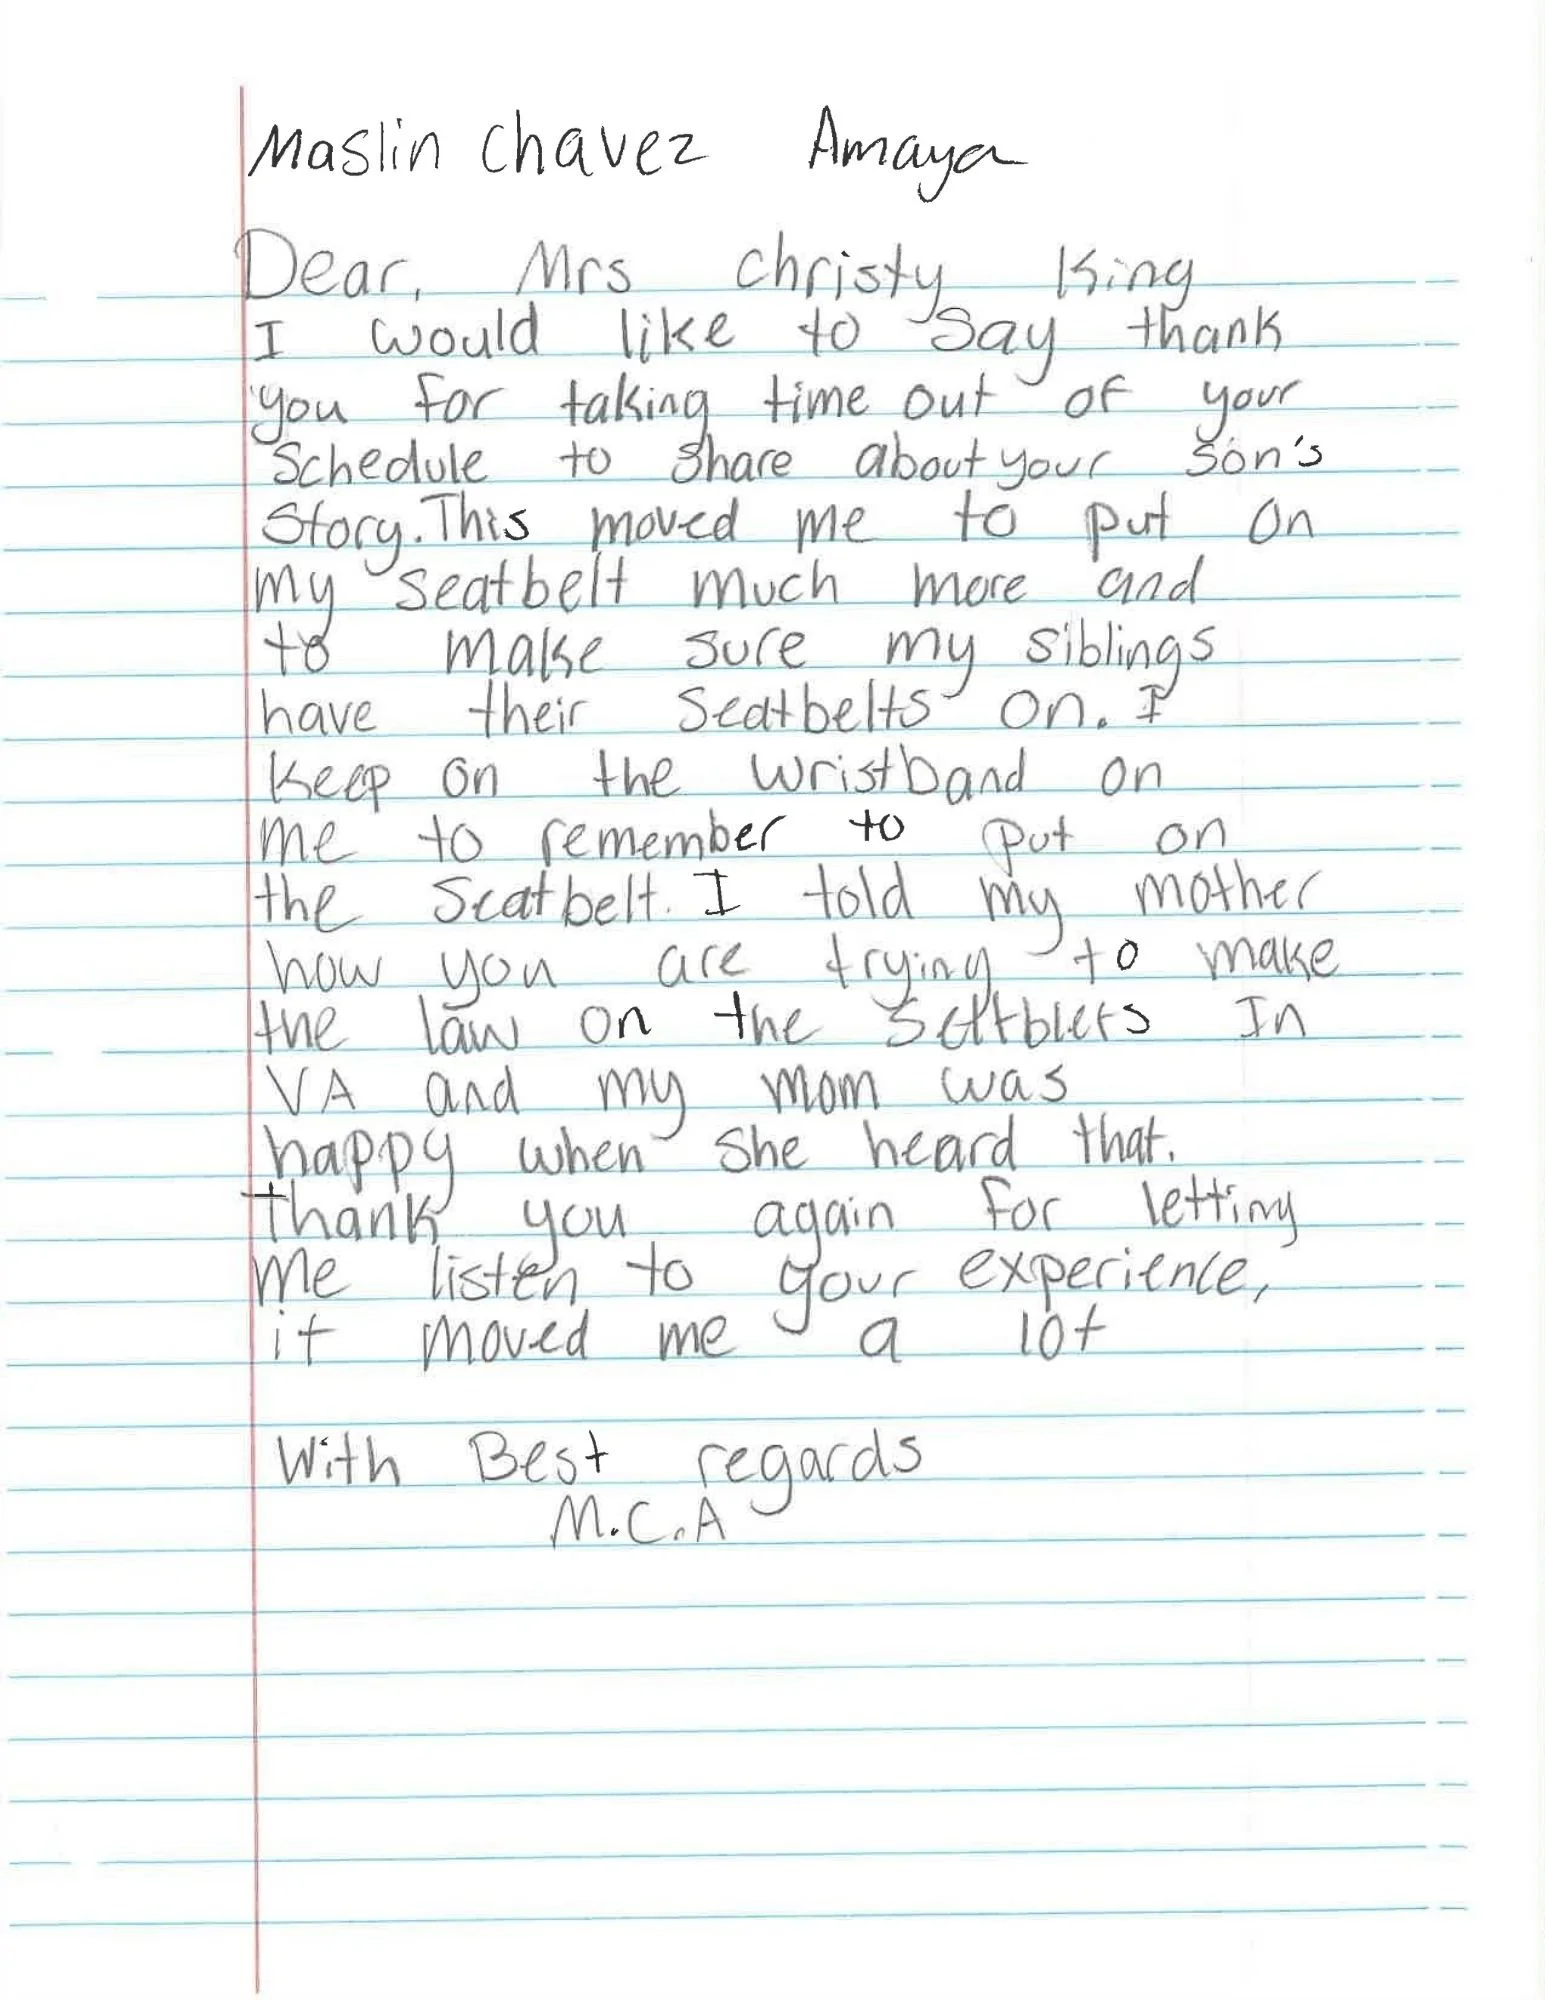 Maslin Chavez Amaya
Dear, Mrs Christy King
I would like to say thank
you for taking time out of your
Schedule to share about your son's
Story. This moved me to put on
my seatbelt much more and
to make sure my siblings
have their seatbelts on. I
keep on the wristband on
me to remember to put on
the seatbelt. I told my mother
how you are trying to make
the law on the settblets In
VA and my mom was
happy when she heard that.
Thank you again for letting
me listen to your experience,
it moved me a lot
With Best regards
M.C.A